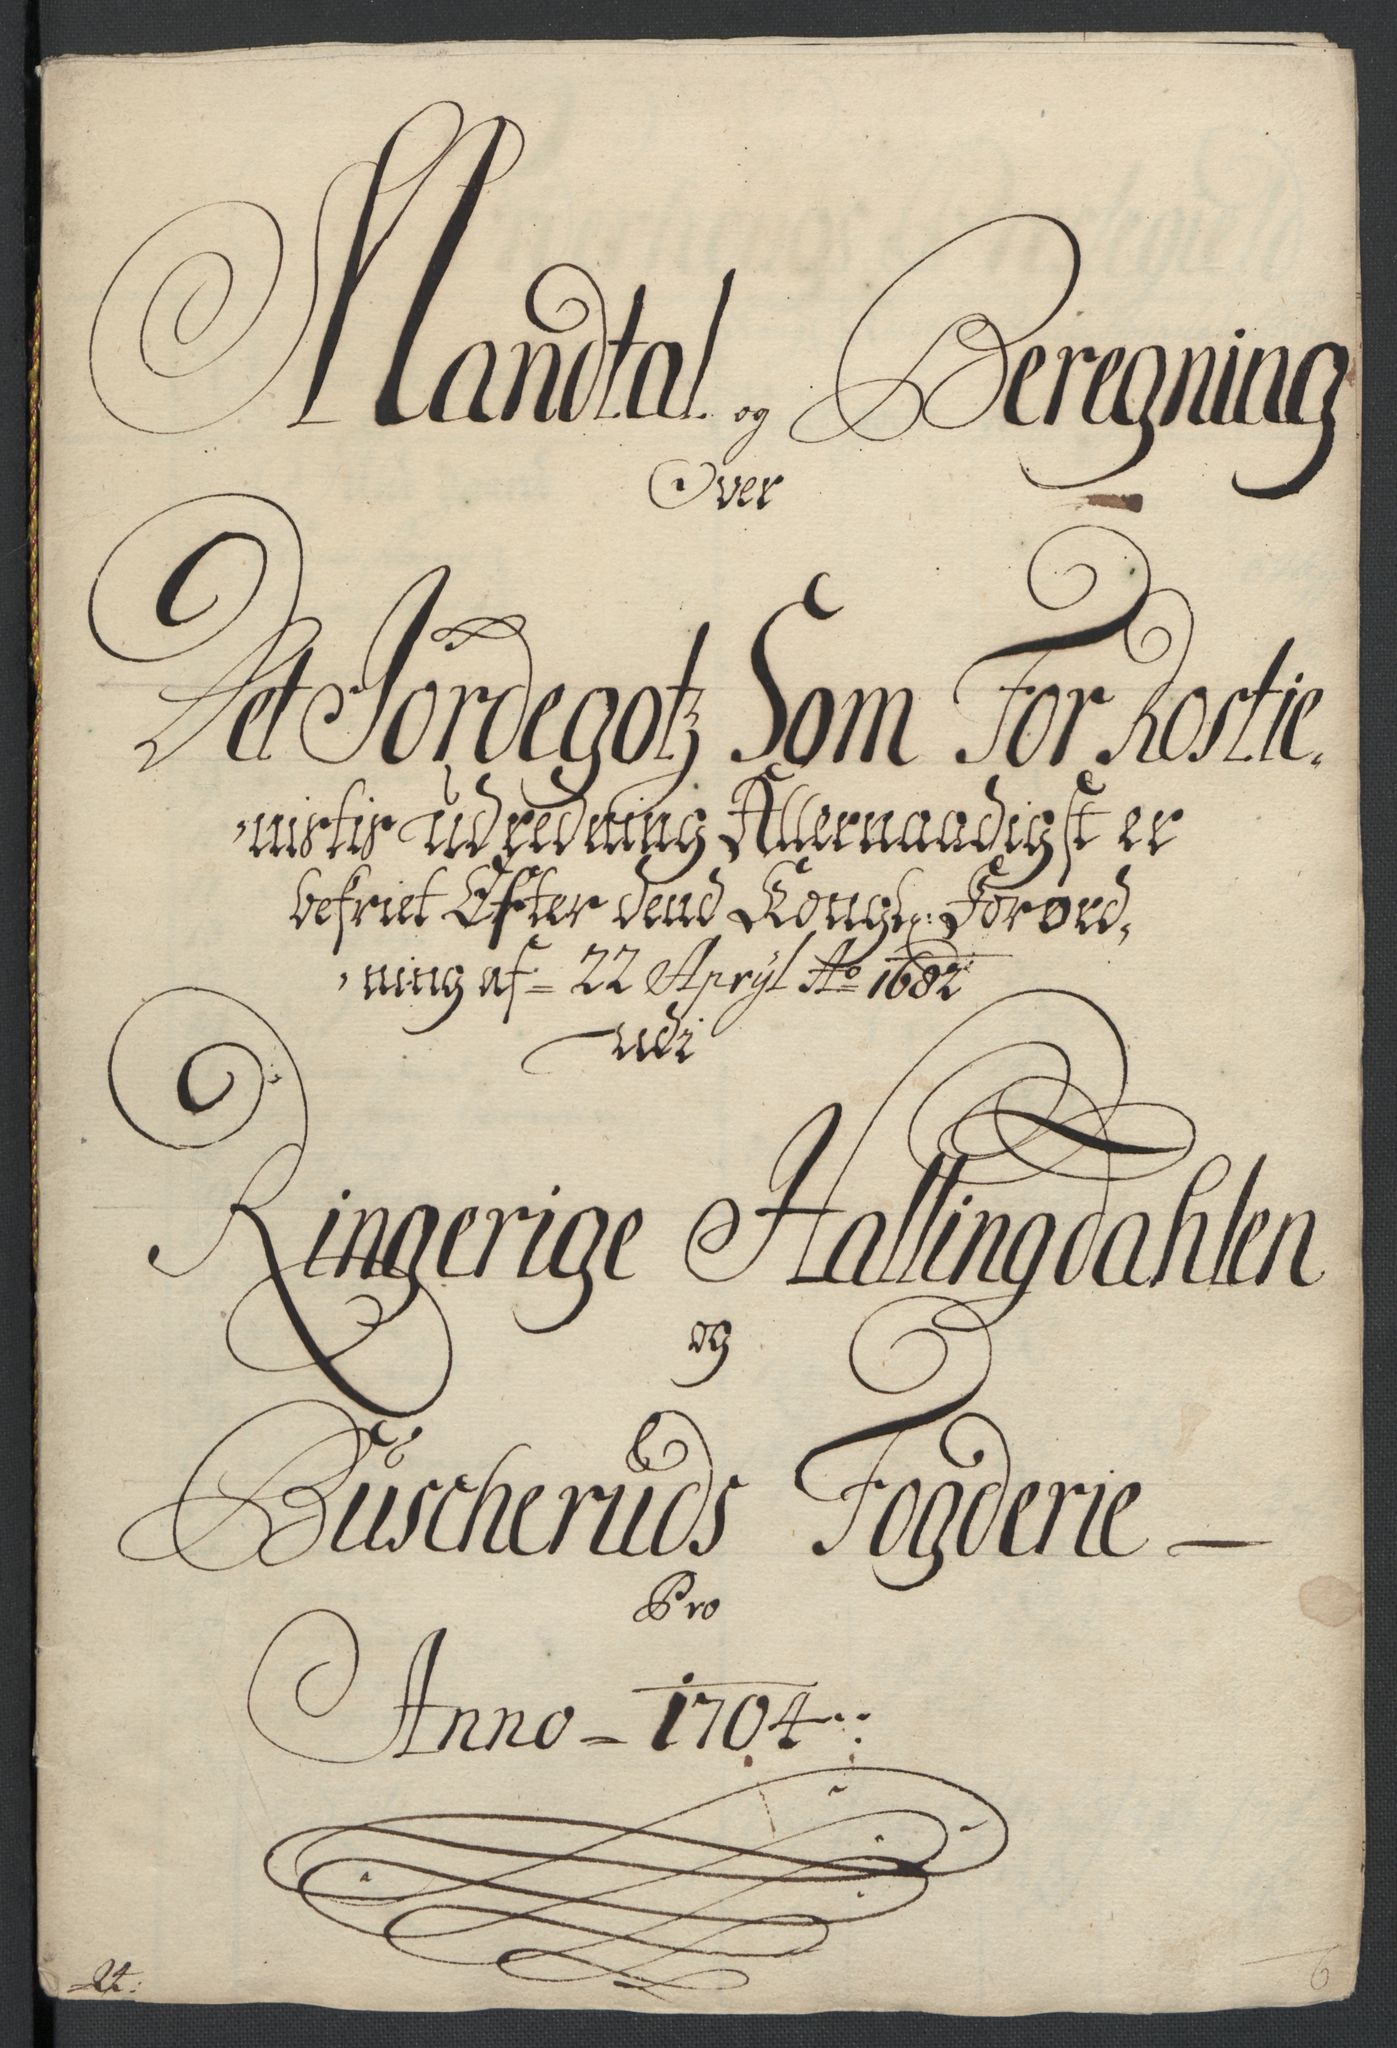 Mandtal og Beregning
Over
Det Jordegotz Som For Rostie,
,nistis Udredning Allernaadigst er
befriet Efter dend Kongl: Forord,
,ning af 22 Apryl Ao 1682
udi
Ringerige Hallingdahlen
og
Büscherüds Fogderie –
Pro
Anno – 1704
24:
6